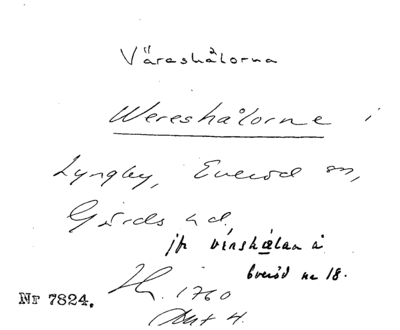 Väreshålorna
Wereshålorne i
Lyngby, Everöd sn,
Gärds hd.
jfr vérshålan å
Everöd nr 18.
Nr 7824.
1760
Akt 4.